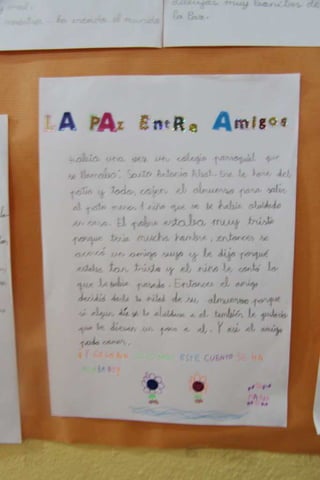 dibujos muy bonitos de
la Paz.
ha creado el mundo
LA PAZ EntRe Amigos
Había una vez un colegio parroquial que
se llamaba: Santo Antonio Abat. Era la hora del
patio y todos cojen el almuerzo para salir
al patio menos 1 niño que se le había olvidado
en casa. El pobre estaba muy triste
porque tenía mucha hambre, entonces se
acercó un amigo suyo y le dijo porqué
estaba tan triste y el niño le contó lo
que le había pasado. Entonces el amigo
decidió darle la mitad de su almuerzo porque
si algun día se le olvidara a el también le gustaría
que le dieran un poco a el. Y así el amigo
pudo comer.
Y COLORIN COLORADO ESTE CUENTO SE HA
ACABADO